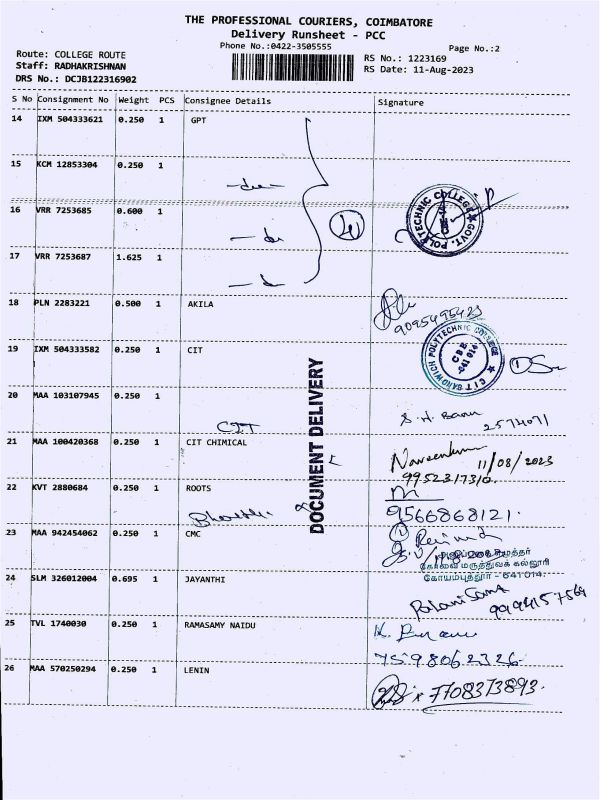 THE PROFESSIONAL COURIERS, COIMBATORE
Delivery Runsheet - PCC
Phone No.:0422-3505555
Page No.:2
Route: COLLEGE ROUTE
Staff: RADHAKRISHNAN
DRS No.: DCJB122316902
RS No.: 1223169
RS Date: 11-Aug-2023
S No Consignment No Weight PCS Consignee Details Signature
14 IXM 504333621 0.250 1 GPT
15 KCM 12853304 0.250 1
16 VRR 7253685 0.600 1
17 VRR 7253687 1.625 1
18 PLN 2283221 0.500 1 AKILA
9095495423
19 IXM 504333582 0.250 1 CIT
20 MAA 103107945 0.250 1
CIT
2574071
21 MAA 100420368 0.250 1 CIT CHIMICAL
Naveenkumar 11/08/2023
9952317310
22 KVT 2880684 0.250 1 ROOTS
9566868121
23 MAA 942454062 0.250 1 CMC
கோவை மருத்துவக் கல்லூரி
கோயம்புத்தூர் - 641 014.
24 SLM 326012004 0.695 1 JAYANTHI
9994157564
25 TVL 1740030 0.250 1 RAMASAMY NAIDU
7598062326
26 MAA 570250294 0.250 1 LENIN
7708373893
DOCUMENT DELIVERY
GOVT. POLYTECHNIC COLLEGE
CIT SANDWICH POLYTECHNIC COLLEGE
CBE
-641 014